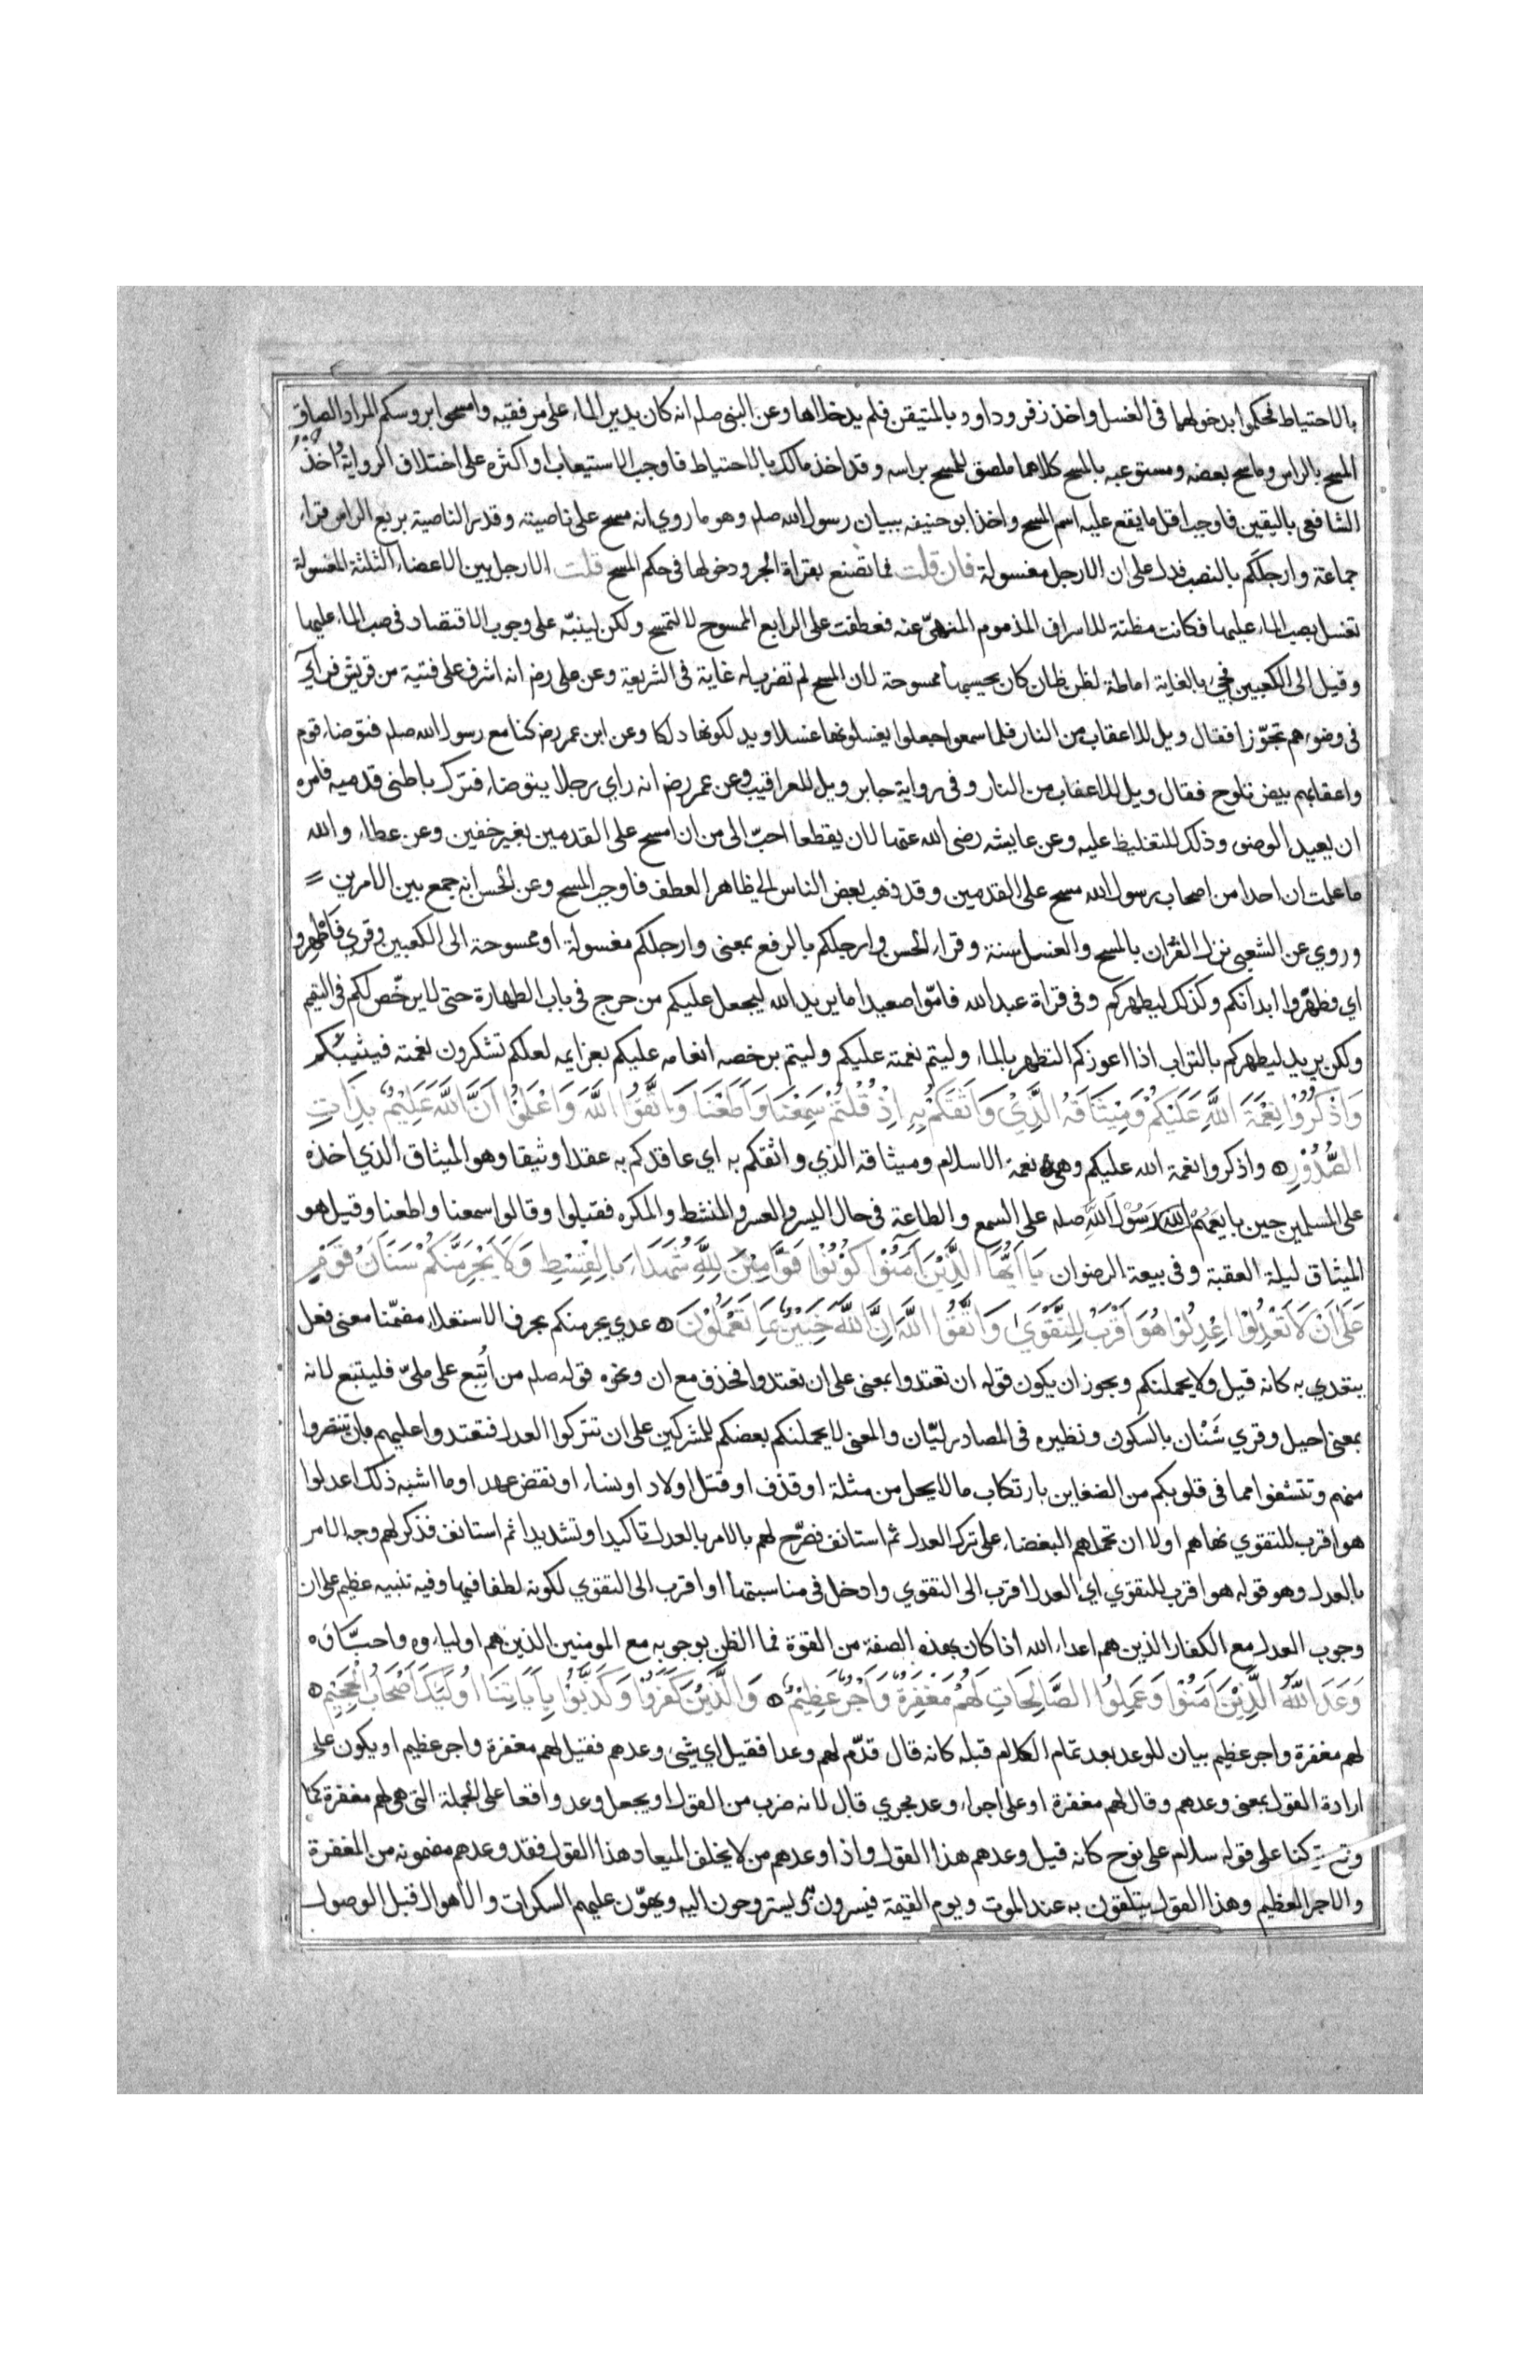 بالاحتياط فحكموا بدخولهما فى الغسل واخذ زفر وداود بالمتيقن فلم يدخلاها وعن النبى صلم انه كان يدير الماء على مرفقيه وامسحوا بروسكم المراد الصاق
المسح بالراس وماسح بعضه ومستوعبه بالمسح كلاهما ملصق للمسح براسه وقد اخذ مالك بالاحتياط فاوجب الاستيعاب او اكثره على اختلاف الرواية واخذ
الشافعى باليقين فاوجب اقل ما يقع عليه اسم المسح واخذ ابو حنيفه ببيان رسول الله صلم وهو ما روي انه مسح على ناصيته وقدر الناصية بربع الراس قراء
جماعة وارجلَكم بالنصب فدل على ان الارجل مغسولة فان قلت فما تصنع بقراة الجر ودخولها فى حكم المسح قلت الارجل بين الاعضاء الثلثة المغسولة
تغسل بصب الماء عليها فكانت مظنة للاسراف المذموم المنهىّ عنه فعطفت على الرابع الممسوح لا لتمسح ولكن لينبّه على وجوب الاقتصاد فى صب الماء عليها
وقيل الى الكعبين فجئ بالغاية اماطة لظن ظان كان يحسبها ممسوحة لان المسح لم تضرب له غاية فى الشريعة وعن على رضى انه اشرف على فتية من قريش فراي
فى وضوءهم تجوّزا فقال ويل للاعقاب من النار فلما سمعوا جعلوا يغسلونها غسلا ويدلكونها دلكا وعن ابن عمر رضى كنا مع رسول الله صلم فتوضاء قوم
واعقابهم بيض تلوح فقال ويل للاعقاب من النار وفى رواية جابر ويل للعراقيب وعن عمر رضى انه راي رجلا يتوضاء فترك باطن قدميه فامره
ان يعيد الوضو وذلك للتغليظ عليه وعن عايشه رضى الله عنها لان يقطعا احبّ الى من ان امسح على القدمين بغير خفين وعن عطاء والله
ما علمت ان احدا من اصحاب رسول الله مسح على القدمين وقد ذهب بعض الناس الى ظاهر العطف فاوجب المسح وعن الحسن انه جمع بين الامرين
وروي عن الشعبى نزل القرآن بالمسح والغسل سنة وقراء الحسن وارجلكم بالرفع بمعنى وارجلكم مغسولة او ممسوحة الى الكعبين وقري فاطهروا
اي فطهّروا ابدانكم وكذلك ليطهركم وفى قراة عبد الله فامّوا صعيدا ما يريد الله ليجعل عليكم من حرج فى باب الطهارة حتى لا يرخّص لكم فى التيمم
ولكن يريد ليطهركم بالتراب اذا اعوزكم التطهر بالماء وليتم نعمته عليكم وليتم برخصه انعامه عليكم بعزايمه لعلكم تشكرون نعمته فيثيبكم
وَاذْكُرُوْا نِعْمَةَ اللهِ عَلَيْكُمْ وَمِيْثَاقَهُ الَّذِيْ وَاثَقَكُمْ بِهِ اِذْ قُلْتُمْ سَمِعْنَا وَاَطَعْنَا وَاتَّقُوا اللهَ وَاعْلَمُوْا اَنَّ اللهَ عَلِيْمٌ بِذَاتِ
الصُّدُوْرِ واذكروا نعمة الله عليكم وهى نعمة الاسلام وميثاقه الذي واثقكم به اي عاقدكم به عقدا وثيقا وهو الميثاق الذي اخذه
على المسلمين حين بايعهم رسول الله صلم على السمع والطاعة فى حال اليسر والعسر والمنشط والمكره فقبلوا وقالوا سمعنا واطعنا وقيل هو
الميثاق ليلة العقبة وفى بيعة الرضوان يَا اَيُّهَا الَّذِيْنَ آمَنُوْا كُوْنُوْا قَوَّامِيْنَ لِلّهِ شُهَدَاءَ بِالْقِسْطِ وَلَا يَجْرِمَنَّكُمْ شَنَآنُ قَوْمٍ
عَلَى اَنْ لَا تَعْدِلُوْا اعْدِلُوْا هُوَ اَقْرَبُ لِلتَّقْوَى وَاتَّقُوا اللهَ اِنَّ اللهَ خَبِيْرٌ بِمَا تَعْمَلُوْنَ عدي يجرمنكم بحرف الاستعلاء مضمّنا معنى فعل
يتعدي به كانه قيل ولا يحملنكم ويجوز ان يكون قوله ان تعتدوا بمعنى على ان تعتدوا فحذف مع ان ونحوه قوله صلم من اُتبع على ملىّ فليتبع لانه
بمعنى احيل وقري شَنْان بالسكون ونظيره فى المصادر ليّان والمعنى لا يحملنكم بعضكم للمشركين على ان تتركوا العدل فتعتدوا عليهم بان تنتصروا
منهم وتتشفوا مما فى قلوبكم من الضغاين بارتكاب ما لا يحل من مثلة او قذف او قتل اولاد او نساء او نقض عهد او ما اشبه ذلك اعدلوا
هو اقرب للتقوي نهاهم اولا ان تحملهم البغضاء على ترك العدل ثم استانف فصرّح لهم بالامر بالعدل تاكيدا وتشديدا ثم استانف فذكر لهم وجه الامر
بالعدل وهو قوله هو اقرب للتقوي اي العدل اقرب الى التقوي وادخل فى مناسبتها او اقرب الى التقوي لكونه لطفا فيها وفيه تنبيه عظيم على ان
وجوب العدل مع الكفار الذين هم اعداء الله اذا كان بهذه الصفة من القوة فما الظن بوجوبه مع المومنين الذين هم اولياءوه واحبّاؤه
وَعَدَ اللهُ الَّذِيْنَ آمَنُوْا وَعَمِلُوا الصَّالِحَاتِ لَهُمْ مَغْفِرَةٌ وَاَجْرٌ عَظِيْمٌ وَالَّذِيْنَ كَفَرُوْا وَكَذَّبُوْا بِاٰيَاتِنَا اُولَئِكَ اَصْحَابُ الْجَحِيْمِ
لهم مغفرة واجر عظيم بيان للوعد بعد تمام الكلام قبله كانه قال قدّم لهم وعدا فقيل اي شىء وعدهم فقيل لهم مغفرة واجر عظيم او يكون على
ارادة القول بمعنى وعدهم وقال لهم مغفرة او على اجراء وعد مجري قال لانه ضرب من القول او يجعل وعد واقعا على الجملة التى هى لهم مغفرة كما
وقع تركنا على قوله سلام على نوح كانه قيل وعدهم هذا القول واذا وعدهم من لا يخلف الميعاد هذا القول فقد وعدهم مضمونه من المغفرة
والاجر العظيم وهذا القول يتلقون به عند الموت ويوم القيمة فيسرون ويستروحون اليه ويهوّن عليهم السكرات والاهوال قبل الوصول